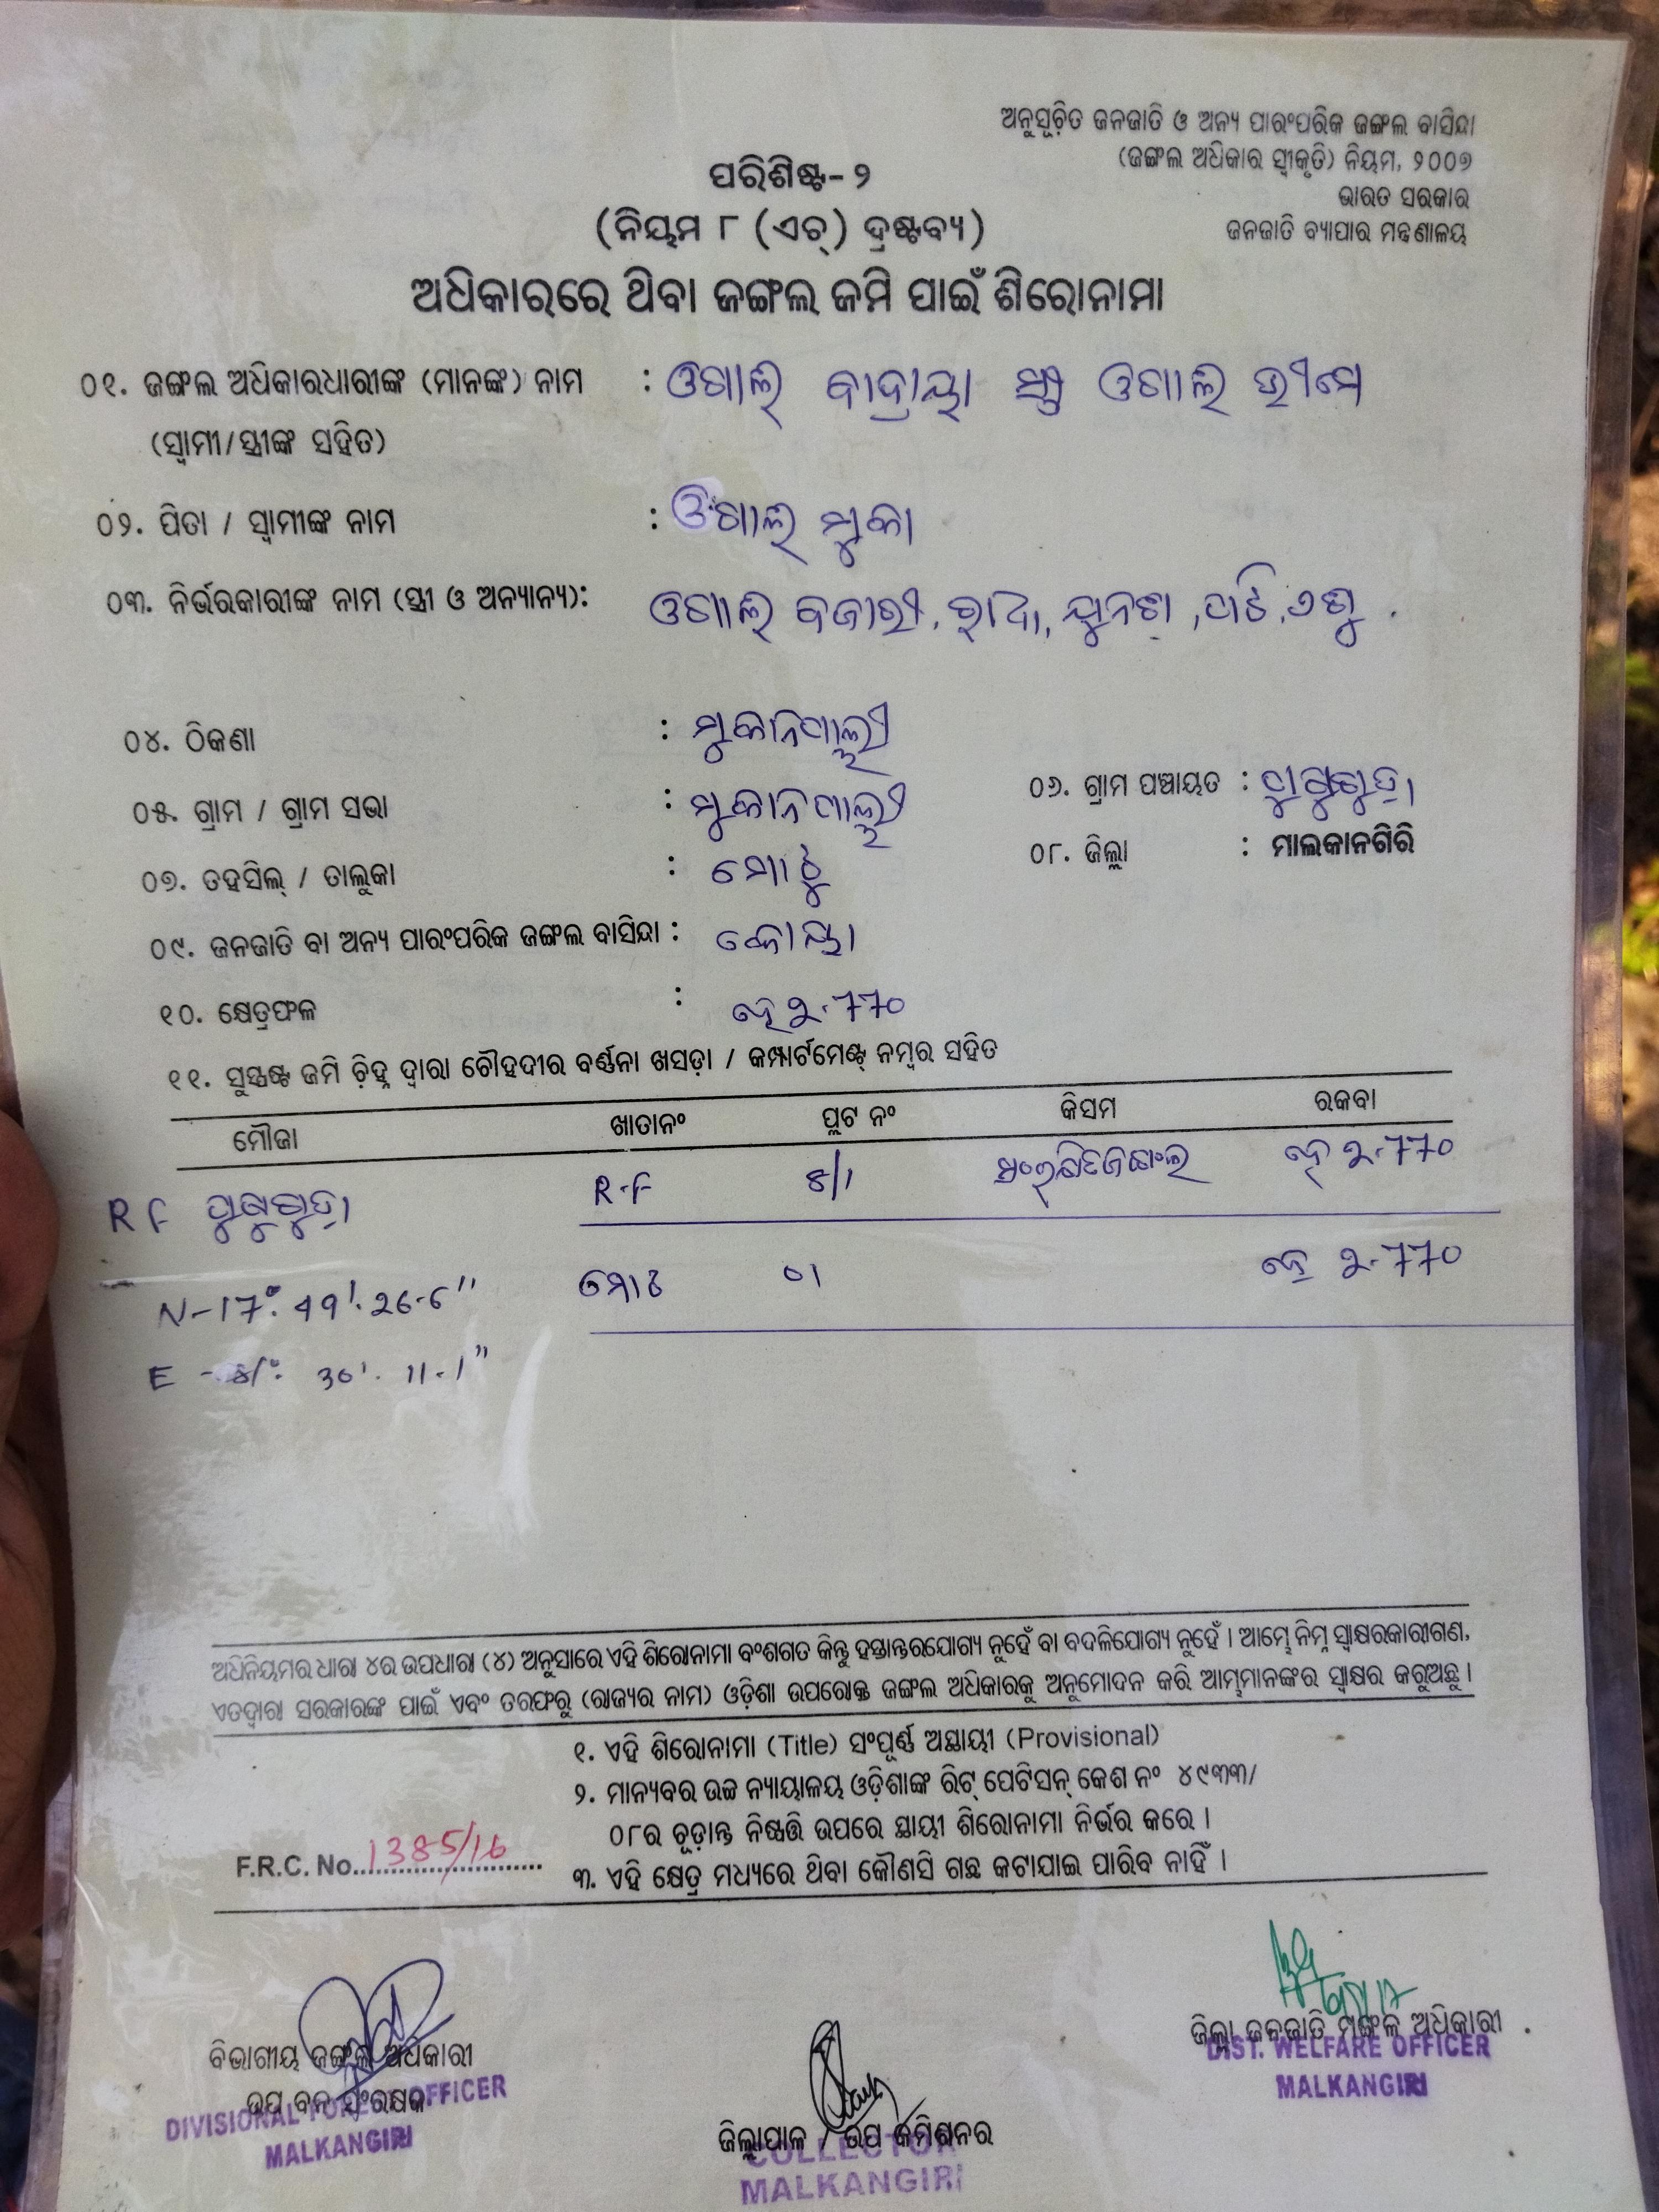 ଅନୁସୂଚିତ ଜନଜାତି ଓ ଅନ୍ୟ ପାରଂପରିକ ଜଙ୍ଗଲ ବାସିନ୍ଦା
(ଜଙ୍ଗଲ ଅଧିକାର ସ୍ୱୀକୃତି) ନିୟମ, ୨୦୦୭
ଭାରତ ସରକାର
ଜନଜାତି ବ୍ୟାପାର ମନ୍ତ୍ରଣାଳୟ
ପରିଶିଷ୍ଟ-୨
(ନିୟମ ୮ (ଏଚ୍) ଦ୍ରଷ୍ଟବ୍ୟ)
ଅଧିକାରରେ ଥିବା ଜଙ୍ଗଲ ଜମି ପାଇଁ ଶିରୋନାମା
୦୧. ଜଙ୍ଗଲ ଅଧିକାରଧାରୀଙ୍କ (ମାନଙ୍କ) ନାମ :
(ସ୍ୱାମୀ/ସ୍ତ୍ରୀଙ୍କ ସହିତ)
୦୨. ପିତା / ସ୍ୱାମୀଙ୍କ ନାମ : ମୁକା
୦୩. ନିର୍ଭରକାରୀଙ୍କ ନାମ (ସ୍ତ୍ରୀ ଓ ଅନ୍ୟାନ୍ୟ):
୦୪. ଠିକଣା :
୦୫. ଗ୍ରାମ / ଗ୍ରାମ ସଭା : ୦୬. ଗ୍ରାମ ପଞ୍ଚାୟତ :
୦୭. ତହସିଲ୍ / ତାଲୁକା : ମୋଟୁ ୦୮. ଜିଲ୍ଲା : ମାଲକାନଗିରି
୦୯. ଜନଜାତି ବା ଅନ୍ୟ ପାରଂପରିକ ଜଙ୍ଗଲ ବାସିନ୍ଦା : କୋୟା
୧୦. କ୍ଷେତ୍ରଫଳ : ହେ ୨.770
୧୧. ସୁସ୍ପଷ୍ଟ ଜମି ଚିହ୍ନ ଦ୍ୱାରା ଚୌହଦୀର ବର୍ଣ୍ଣନା ଖସଡ଼ା / କମ୍ପାର୍ଟମେଣ୍ଟ୍ ନମ୍ବର ସହିତ
ମୌଜା ଖାତାନଂ ପ୍ଲଟ ନଂ କିସମ ରକବା
RF R.F ୫/1 ହେ ୨.770
ମୋଟ ୦1 ହେ ୨.770
N-17°. 49'. 26.6"
E - 81°. 30'. 11.1"
ଅଧିନିୟମର ଧାରା ୪ର ଉପଧାରା (୪) ଅନୁସାରେ ଏହି ଶିରୋନାମା ବଂଶଗତ କିନ୍ତୁ ହସ୍ତାନ୍ତରଯୋଗ୍ୟ ନୁହେଁ ବା ବଦଳିଯୋଗ୍ୟ ନୁହେଁ । ଆମ୍ଭେ ନିମ୍ନ ସ୍ୱାକ୍ଷରକାରୀଗଣ,
ଏତଦ୍ୱାରା ସରକାରଙ୍କ ପାଇଁ ଏବଂ ତରଫରୁ (ରାଜ୍ୟର ନାମ) ଓଡ଼ିଶା ଉପରୋକ୍ତ ଜଙ୍ଗଲ ଅଧିକାରକୁ ଅନୁମୋଦନ କରି ଆମ୍ଭମାନଙ୍କର ସ୍ୱାକ୍ଷର କରୁଅଛୁ ।
୧. ଏହି ଶିରୋନାମା (Title) ସଂପୂର୍ଣ୍ଣ ଅସ୍ଥାୟୀ (Provisional)
୨. ମାନ୍ୟବର ଉଚ୍ଚ ନ୍ୟାୟାଳୟ ଓଡ଼ିଶାଙ୍କ ରିଟ୍ ପେଟିସନ୍ କେଶ ନଂ ୪୯୩୩/
୦୮ର ଚୂଡ଼ାନ୍ତ ନିଷ୍ପତ୍ତି ଉପରେ ସ୍ଥାୟୀ ଶିରୋନାମା ନିର୍ଭର କରେ ।
F.R.C. No. 1385/16
୩. ଏହି କ୍ଷେତ୍ର ମଧ୍ୟରେ ଥିବା କୌଣସି ଗଛ କଟାଯାଇ ପାରିବ ନାହିଁ ।
ବିଭାଗୀୟ ଜଙ୍ଗଲ ଅଧିକାରୀ
ଉପ ବନ ସଂରକ୍ଷକ
DIVISIONAL FOREST OFFICER
MALKANGIRI
ଜିଲ୍ଲାପାଳ / ଉପ କମିଶନର
COLLECTOR
MALKANGIRI
ଜିଲ୍ଲା ଜନଜାତି ମଙ୍ଗଳ ଅଧିକାରୀ
DIST. WELFARE OFFICER
MALKANGIRI